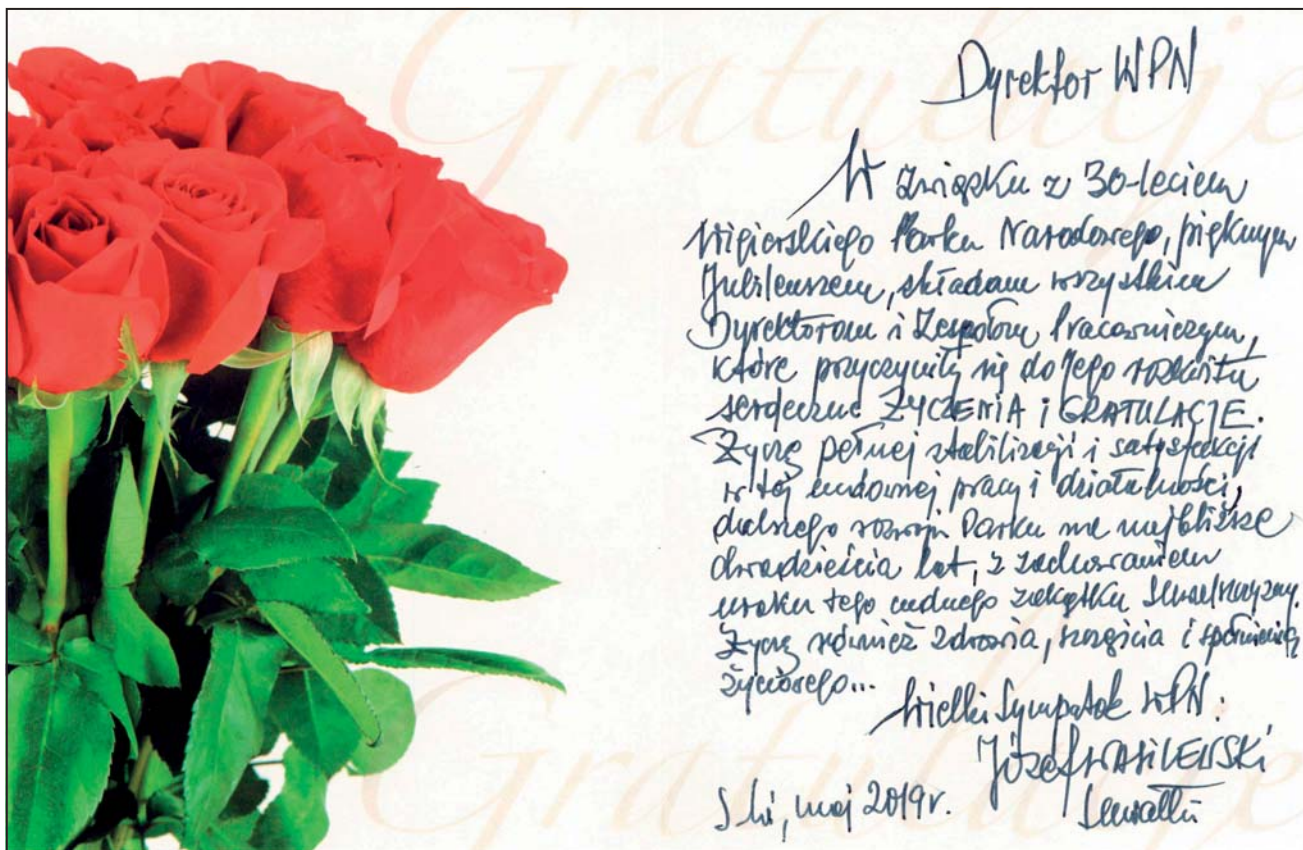 Gratulacje
Dyrektor WPN
W związku z 30-leciem
Wigierskiego Parku Narodowego, pięknym
Jubileuszem, składam wszystkim
Dyrektorom i Zespołom Pracowniczym,
które przyczyniły się do Jego rozkwitu
serdeczne ŻYCZENIA i GRATULACJE.
Życzę pełnej stabilizacji i satysfakcji
w tej cudownej pracy i działalności,
dalszego rozwoju Parku na najbliższe
dwadzieścia lat, z zachowaniem
uroku tego cudnego zakątku Suwalszczyzny.
Życzę również zdrowia, szczęścia i spełnienia
życiowego...
Wielki Sympatyk WPN:
Józef WASILEWSKI
S-ki, maj 2019 r.
Suwałki
Gratulacje